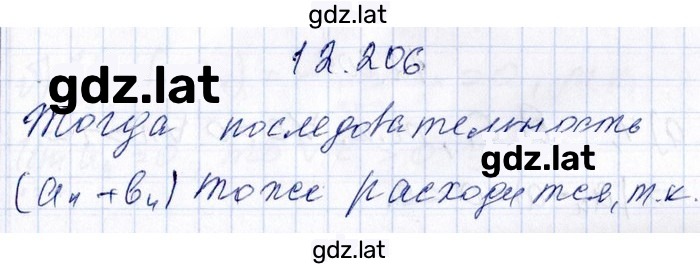 gdz.lat
12.206
gdz.lat
Тогда последовательность
gdz.lat
(aₙ + bₙ) тоже расходится, т.к.
gdz.lat